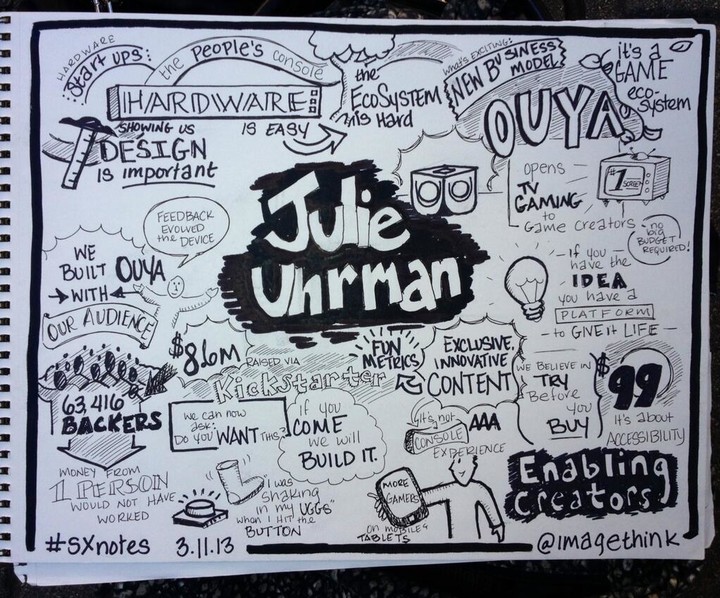 HARDWARE
Start ups:
the People's console
HARDWARE
IS EASY
the
EcoSystem
is Hard
What's EXCITING:
NEW BUSINESS
MODEL
OUYA
it's a
GAME
eco-
system
SHOWING US
DESIGN
IS important
opens
TV
GAMING
to
Game creators
#1
SCREEN
no
big
BUDGET
REQUIRED!
FEEDBACK
EVOLVED
the DEVICE
Julie
Uhrman
WE
BUILT OUYA
WITH
OUR AUDIENCE
If you
have the
IDEA
you have a
PLATFORM
to GIVE it LIFE
$8.6M RAISED VIA
Kickstarter
FUN
METRICS
EXCLUSIVE,
INNOVATIVE
CONTENT
WE BELIEVE IN
TRY
Before
you
BUY
$99
It's about
ACCESSIBILITY
63,416
BACKERS
we can now
ask:
DO YOU WANT THIS?
if you
COME
we will
BUILD IT.
it's not AAA
CONSOLE
EXPERIENCE
MONEY FROM
1 PERSON
WOULD NOT HAVE
WORKED
"I was
shaking
in my UGGs"
when I HIT the
BUTTON
MORE
GAMERS
on mobile &
TABLETS
Enabling
Creators
#SXnotes 3.11.13
@imagethink